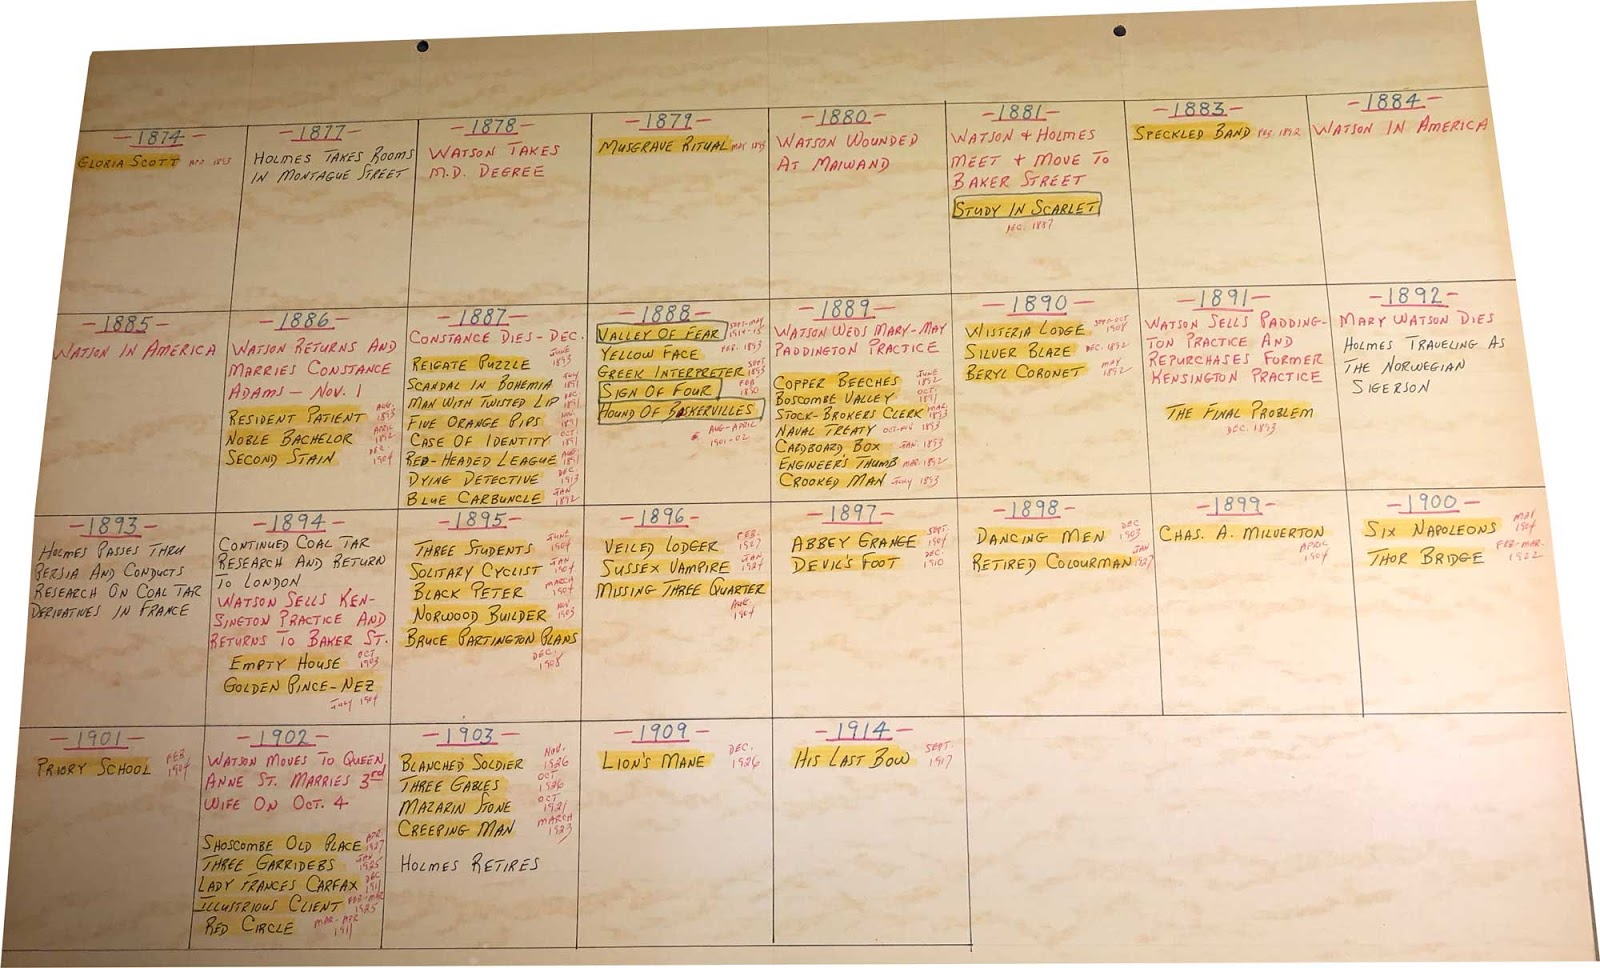 -1874-
GLORIA SCOTT APR. 1893
-1877-
HOLMES TAKES ROOMS
IN MONTAGUE STREET
-1878-
WATSON TAKES
M.D. DEGREE
-1879-
MUSGRAVE RITUAL MAY 1893
-1880-
WATSON WOUNDED
AT MAIWAND
-1881-
WATSON + HOLMES
MEET + MOVE TO
BAKER STREET
STUDY IN SCARLET
DEC. 1887
-1883-
SPECKLED BAND FEB. 1892
-1884-
WATSON IN AMERICA
-1885-
WATSON IN AMERICA
-1886-
WATSON RETURNS AND
MARRIES CONSTANCE
ADAMS - NOV. 1
RESIDENT PATIENT AUG. 1893
NOBLE BACHELOR APRIL 1892
SECOND STAIN DEC. 1904
-1887-
CONSTANCE DIES - DEC.
REIGATE PUZZLE JUNE 1893
SCANDAL IN BOHEMIA JULY 1891
MAN WITH TWISTED LIP DEC. 1891
FIVE ORANGE PIPS NOV. 1891
CASE OF IDENTITY OCT. 1891
RED-HEADED LEAGUE AUG. 1891
DYING DETECTIVE DEC. 1913
BLUE CARBUNCLE JAN 1892
-1888-
VALLEY OF FEAR SEPT-MAY 1914-15
YELLOW FACE FEB. 1893
GREEK INTERPRETER SEPT 1893
SIGN OF FOUR FEB 1890
HOUND OF BASKERVILLES
AUG-APRIL
1901-02
-1889-
WATSON WEDS MARY-MAY
PADDINGTON PRACTICE
COPPER BEECHES JUNE 1892
BOSCOMBE VALLEY OCT. 1891
STOCK-BROKERS CLERK MAR. 1893
NAVAL TREATY OCT-NOV 1893
CARDBOARD BOX JAN. 1893
ENGINEER'S THUMB MAR. 1892
CROOKED MAN JULY 1893
-1890-
WISTERIA LODGE SEPT-OCT 1908
SILVER BLAZE DEC. 1892
BERYL CORONET MAY 1892
-1891-
WATSON SELLS PADDING-
TON PRACTICE AND
REPURCHASES FORMER
KENSINGTON PRACTICE
THE FINAL PROBLEM
DEC. 1893
-1892-
MARY WATSON DIES
HOLMES TRAVELING AS
THE NORWEGIAN
SIGERSON
-1893-
HOLMES PASSES THRU
PERSIA AND CONDUCTS
RESEARCH ON COAL TAR
DERIVATIVES IN FRANCE
-1894-
CONTINUED COAL TAR
RESEARCH AND RETURN
TO LONDON
WATSON SELLS KEN-
SINGTON PRACTICE AND
RETURNS TO BAKER ST.
EMPTY HOUSE OCT 1903
GOLDEN PINCE-NEZ
JULY 1904
-1895-
THREE STUDENTS JUNE 1904
SOLITARY CYCLIST JAN 1904
BLACK PETER MARCH 1904
NORWOOD BUILDER NOV. 1903
BRUCE PARTINGTON PLANS
DEC. 1908
-1896-
VEILED LODGER FEB. 1927
SUSSEX VAMPIRE JAN 1924
MISSING THREE QUARTER
AUG. 1904
-1897-
ABBEY GRANGE SEPT. 1904
DEVIL'S FOOT DEC. 1910
-1898-
DANCING MEN DEC 1903
RETIRED COLOURMAN JAN 1927
-1899-
CHAS. A. MILVERTON
APRIL 1904
-1900-
SIX NAPOLEONS MAY 1904
THOR BRIDGE FEB-MAR. 1922
-1901-
PRIORY SCHOOL FEB 1904
-1902-
WATSON MOVES TO QUEEN
ANNE ST. MARRIES 3rd
WIFE ON OCT. 4
SHOSCOMBE OLD PLACE APR. 1927
THREE GARRIDEBS JAN 1925
LADY FRANCES CARFAX DEC 1911
ILLUSTRIOUS CLIENT FEB-MAR 1925
RED CIRCLE MAR-APR 1911
-1903-
BLANCHED SOLDIER NOV. 1926
THREE GABLES OCT 1926
MAZARIN STONE OCT 1921
CREEPING MAN MARCH 1923
HOLMES RETIRES
-1909-
LION'S MANE DEC. 1926
-1914-
HIS LAST BOW SEPT. 1917